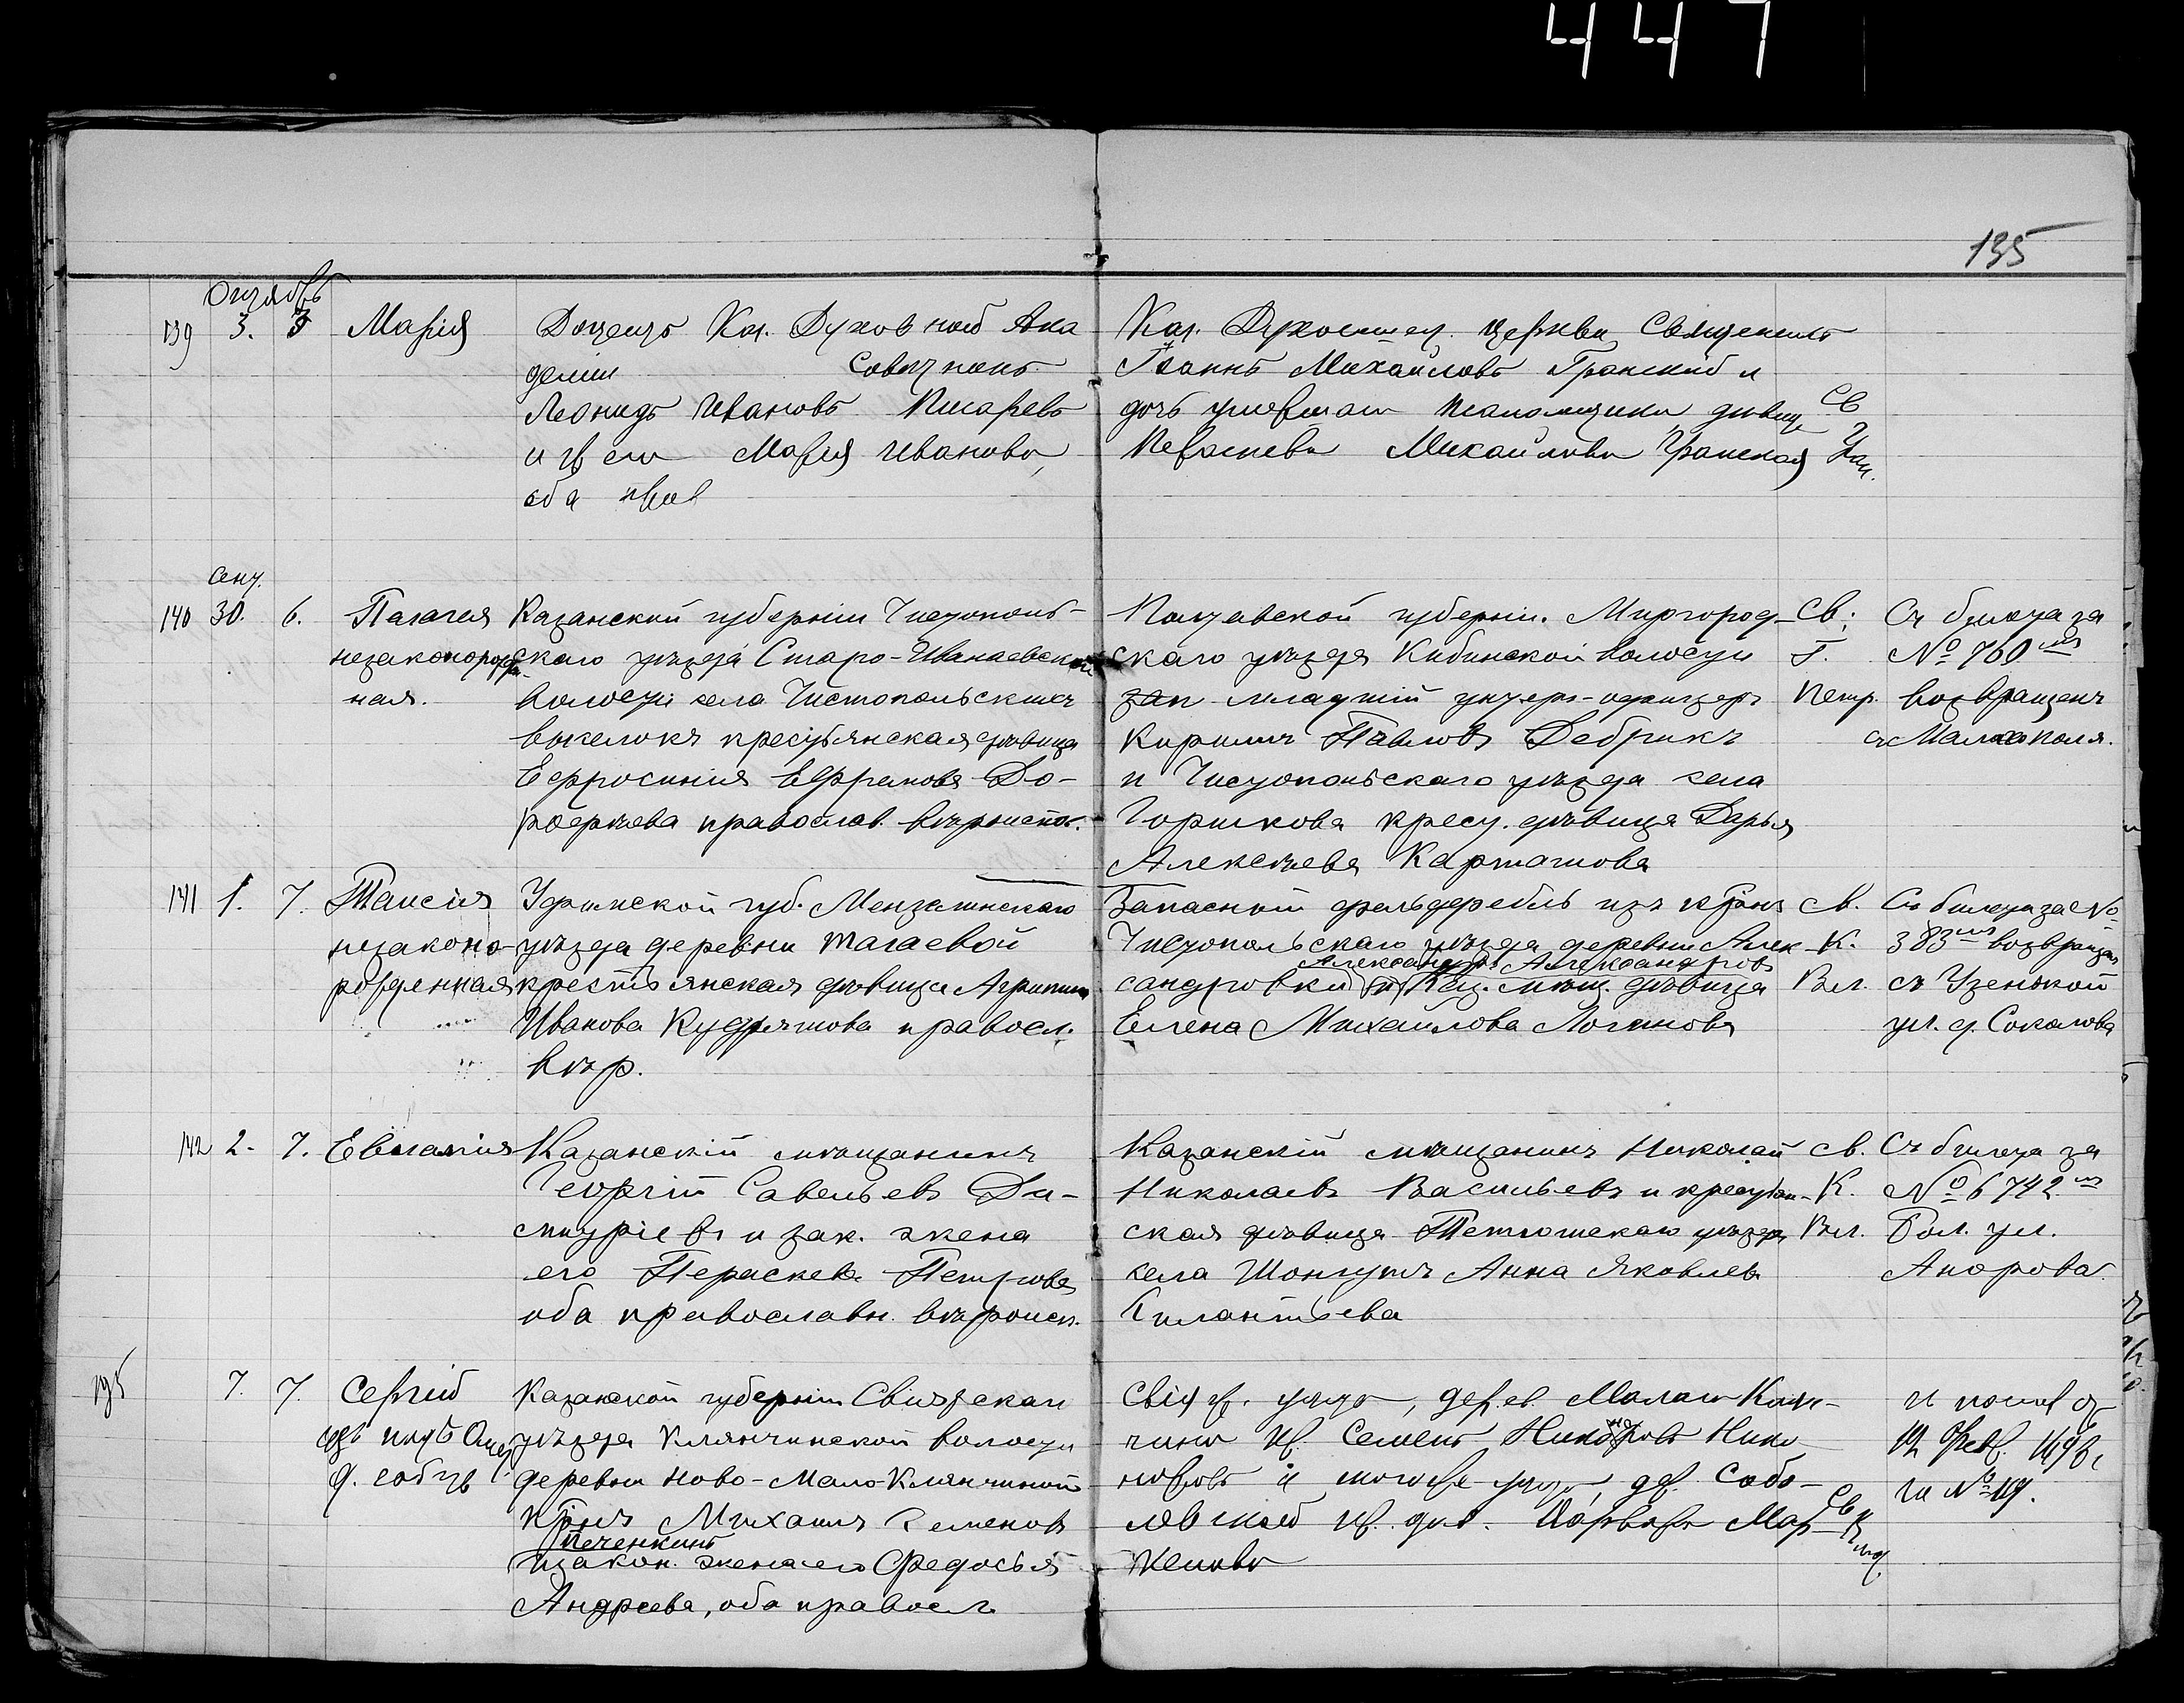 447
135
Октябрь
139 3. 3 Марія
Доцентъ Каз. Духовной Ака
деміи
Леонидъ Ивановъ Писаревъ
и з. его Марія Иванова,
оба прав
Каз. церкви Священникъ
Іоаннъ Михайловъ и
дочь девица
Михайлова
Св
Сент.
140 30. 6. Пелагея
незаконорожден-
ная.
Казанской губерніи Чистополь-
скаго уѣзда Старо-Иванаевской
волости села Чистопольскихъ
выселокъ крестьянская дѣвица
Ефросинія Ефремова До-
рофеева православ. вѣроиспов.
Полтавской губерніи. Миргород-
скаго уѣзда Кибинской волости
зап младшій унтеръ-офицеръ
Кириллъ Павловъ Дебрикъ
и Чистопольскаго уѣзда села
Горшкова крест. дѣвица Дарья
Алексѣева Карташова
Св.
Г.
Петр.
Съ билета за
№ 760мъ
возвращенъ
съ Мамаполя.
141 1. 7. Таисія
незаконо-
рожденная
Уфимской губ. Мензелинскаго
уѣзда деревни Тагаевой
крестьянская дѣвица Агрипина
Иванова Кудряшова правосл.
вѣр.
Запасной фельдфебель изъ кр-нъ
Чистопольскаго уѣзда деревни Алек-
Александръ Александровъ
сандровки и Каз. мѣщ. дѣвица
Елена Михаилова Логинова
С.
К.
Вл.
Съ билета за №
383мъ возвращенъ
съ Узенькой
ул. д. Соколова
142 2. 7. Евлалія
Казанскій мѣщанинъ
Георгій Савельевъ Ди-
митріевъ и зак. жена
его Параскева Петрова
оба православн. вѣроисп.
Казанскій мѣщанинъ Николай
Николаевъ Васильевъ и крестьян-
ская дѣвица Тетюшскаго уѣзда
села Шонгутъ Анна Яковлева
Гилантьева
С.
К.
Вл.
Съ билета за
№ 6742мъ
Бол. ул.
Анорова
7. 7. Сергій
Казанской губерніи Свіяжскаго
уѣзда Клянчинской волости
деревни Ново-Мало Клянчиной
кр-нъ Михаилъ Семеновъ
Печенкинъ
и закон. жена его Федосья
Андреева, оба правосл
Свіяж. уезда, дерев. Малаго Клян-
чина кр. Семенъ Никаноровъ Нико
норовъ и того же уезда, дер. Собо-
левской кр. дев. Варвара Мар-
келова
Св
и
12 Февр.
за № 119.